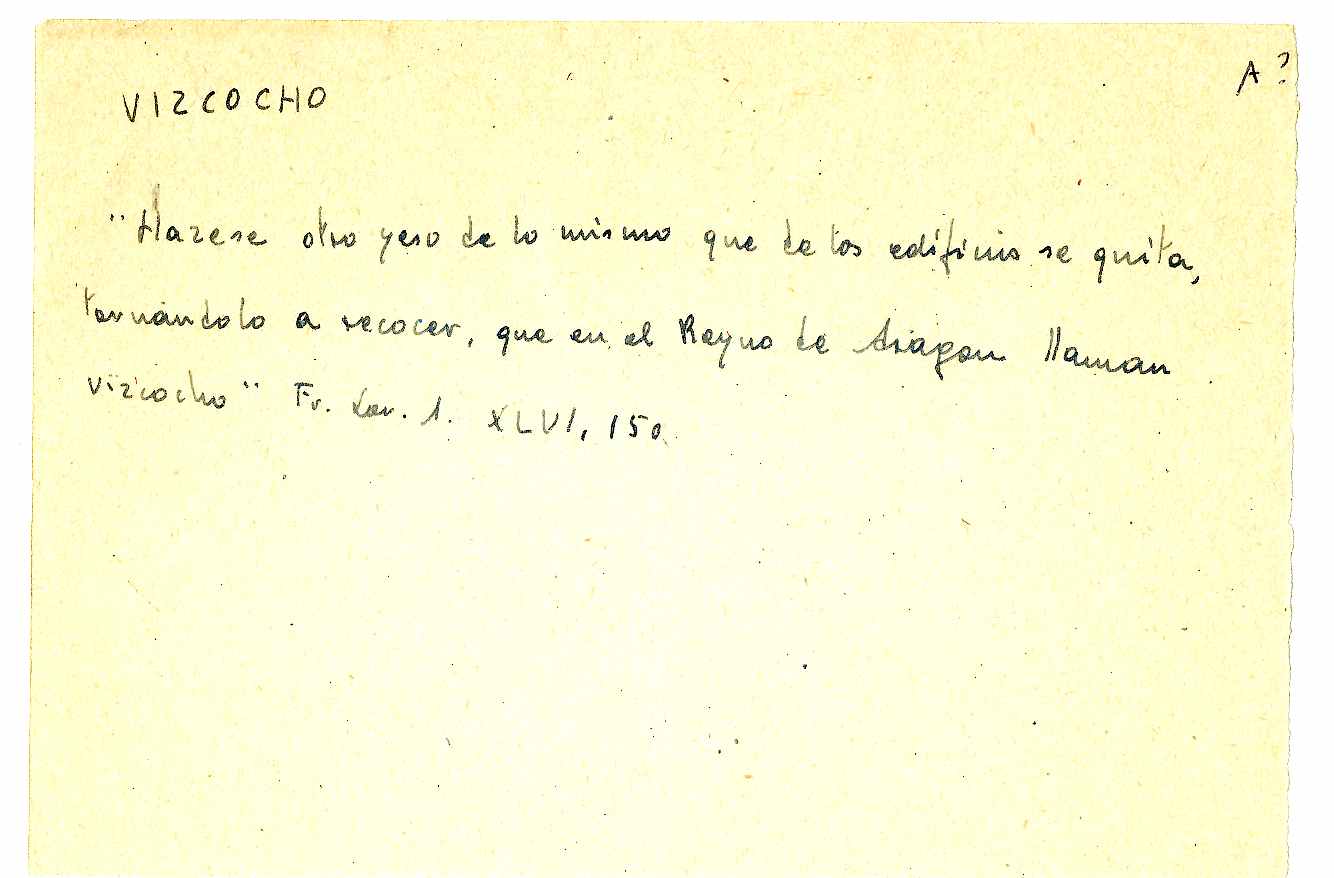 A?
VIZCOCHO
"Hazese otro yeso de lo mismo que de los edificios se quita,
tornándolo a recocer, que en el Reyno de Aragon llaman
vizcocho" Fr. Lor. 1. XLVI, 150.